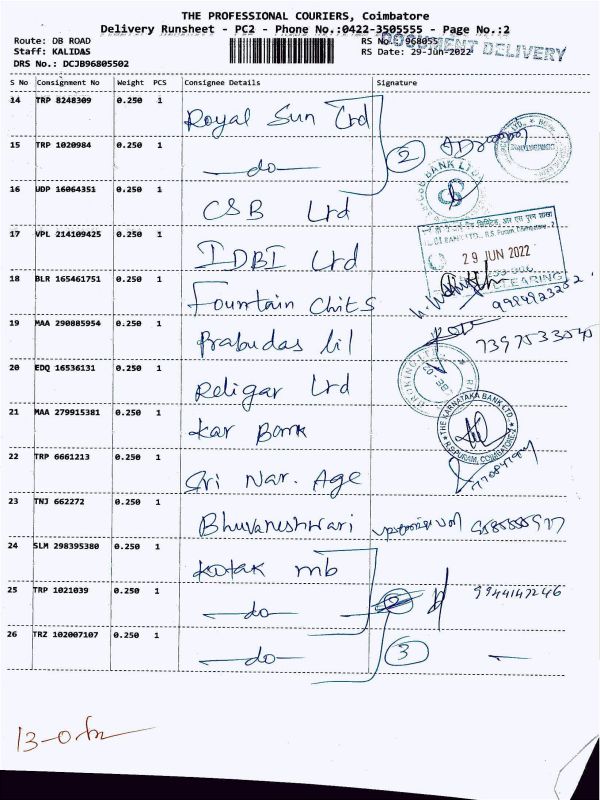 THE PROFESSIONAL COURIERS, Coimbatore
Delivery Runsheet - PC2 - Phone No.:0422-3505555 - Page No.:2
Route: DB ROAD
RS No.: 968055
DOCUMENT DELIVERY
Staff: KALIDAS
RS Date: 29-Jun-2022
DRS No.: DCJB96805502
S No Consignment No Weight PCS Consignee Details Signature
14 TRP 8248309 0.250 1 Royal Sun Lrd
15 TRP 1020984 0.250 1 -do- 2
16 UDP 16064351 0.250 1 CSB Lrd
CSB BANK LTD
17 VPL 214109425 0.250 1 IDBI Lrd
29 JUN 2022
CLEARING
18 BLR 165461751 0.250 1 Fountain Chits
19 MAA 290885954 0.250 1 Prabudas lil
20 EDQ 16536131 0.250 1 Religar Lrd
21 MAA 279915381 0.250 1 Kar Bank
THE KARNATAKA BANK LTD.
R.S.PURAM, COIMBATORE-2
22 TRP 6661213 0.250 1 Sri Nar. Age
23 TNJ 662272 0.250 1 Bhuvaneshwari
24 SLM 298395380 0.250 1 Kotak mb
25 TRP 1021039 0.250 1 -do- 9944147246
26 TRZ 102007107 0.250 1 -do- 3 -